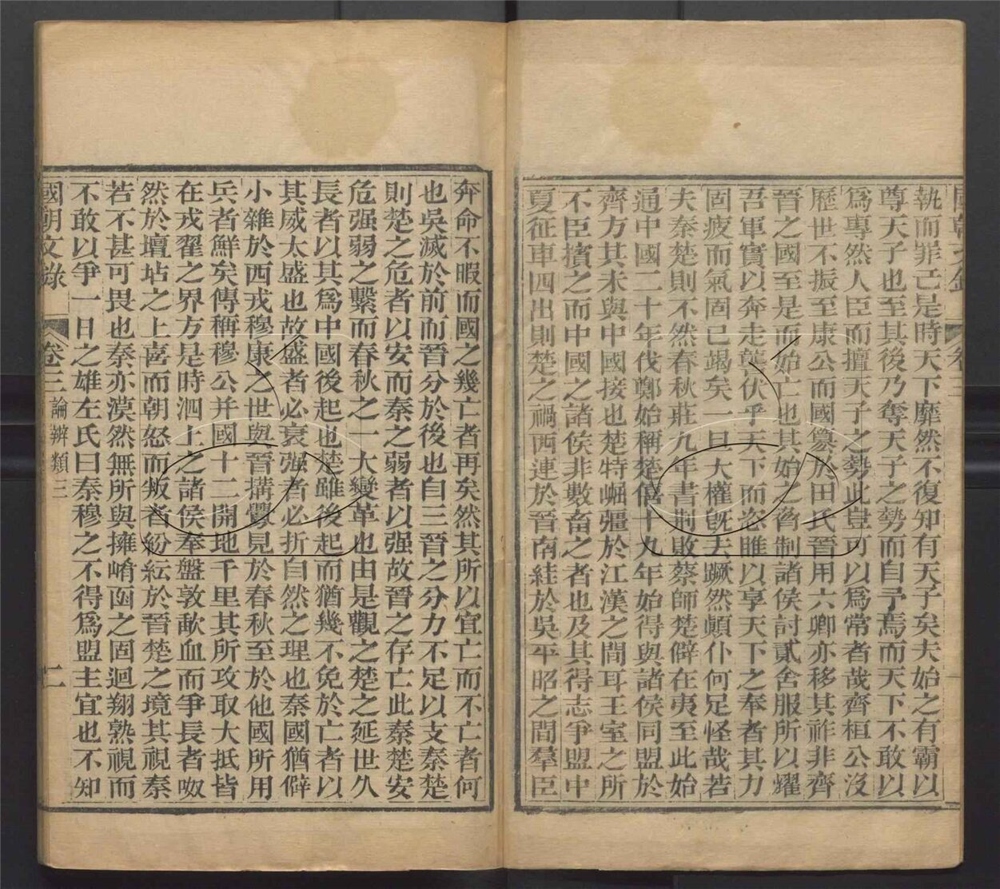 國朝文錄 卷三
執而罪已是時天下靡然不復知有天子矣夫始之有霸以
尊天子也至其後乃奪天子之勢而自予焉而天下不敢以
爲專然人臣而擅天子之勢此豈可以爲常者哉齊桓公沒
歷世不振至康公而國篡於田氏晉用六卿亦移其祚非齊
晉之國至是而始亡也其始之㑹制諸侯討貳舍服所以耀
吾軍實以奔走讋伏乎天下而恣睢以享天下之奉者其力
固疲而氣固已竭矣一旦大權旣去蹶然顚仆何足怪哉若
夫秦楚則不然春秋莊九年書荆敗蔡師楚僻在夷至此始
通中國二十年伐鄭始稱楚僖十九年始得與諸侯同盟於
齊方其未與中國接也楚特崛彊於江漢之間耳王室之所
不臣擯之而中國之諸侯非數畜之者也及其得志爭盟中
夏征車四出則楚之禍西連於晉南絓於吳平昭之間羣臣
奔命不暇而國之幾亡者再矣然其所以宜亡而不亡者何
也吳滅於前而晉分於後也自三晉之分力不足以支秦楚
則楚之危者以安而秦之弱者以强故晉之存亡此秦楚安
危强弱之繫而春秋之一大變革也由是觀之楚之延世久
長者以其爲中國後起也楚雖後起而猶幾不免於亡者以
其威太盛也故盛者必衰强者必折自然之理也秦國猶僻
小雜於西戎穆康之世與晉搆釁見於春秋至於他國所用
兵者鮮矣傳稱穆公并國十二開地千里其所攻取大抵皆
在戎翟之界方是時泗上之諸侯奉盤敦歃血而爭長者呶
然於壇坫之上喜而朝怒而叛者紛紜於晉楚之境其視秦
若不甚可畏也秦亦漠然無所與擁崤函之固迴翔熟視而
不敢以爭一日之雄左氏曰秦穆之不得爲盟主宜也不知
國朝文錄 卷三 論辨類三 二